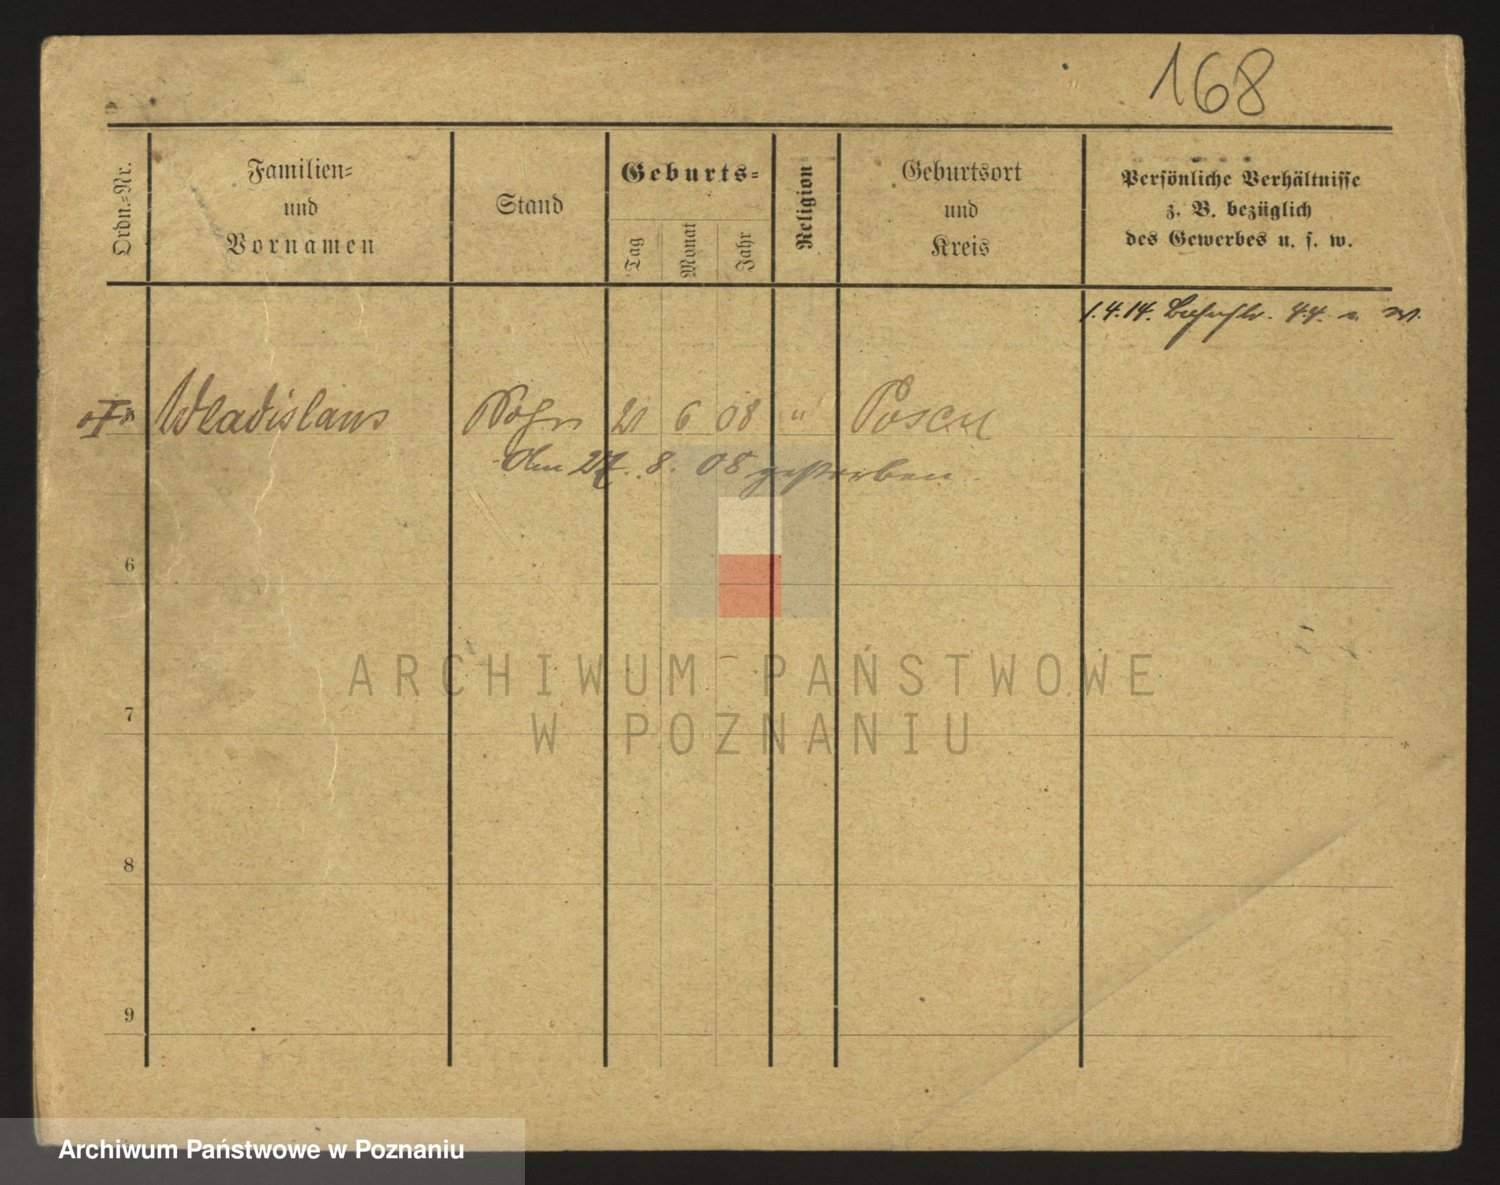 168
Ordn.-Nr.
Familien-
und
Vornamen
Stand
Geburts-
Tag
Monat
Jahr
Religion
Geburtsort
und
Kreis
Persönliche Verhältnisse
z. B. bezüglich
des Gewerbes u. s. w.
1.4.14. 44.
Wladislaus Sohn 21 6 08 " Posen
den 27. 8. 08 gestorben.
6
7
8
9
ARCHIWUM PAŃSTWOWE
W POZNANIU
Archiwum Państwowe w Poznaniu